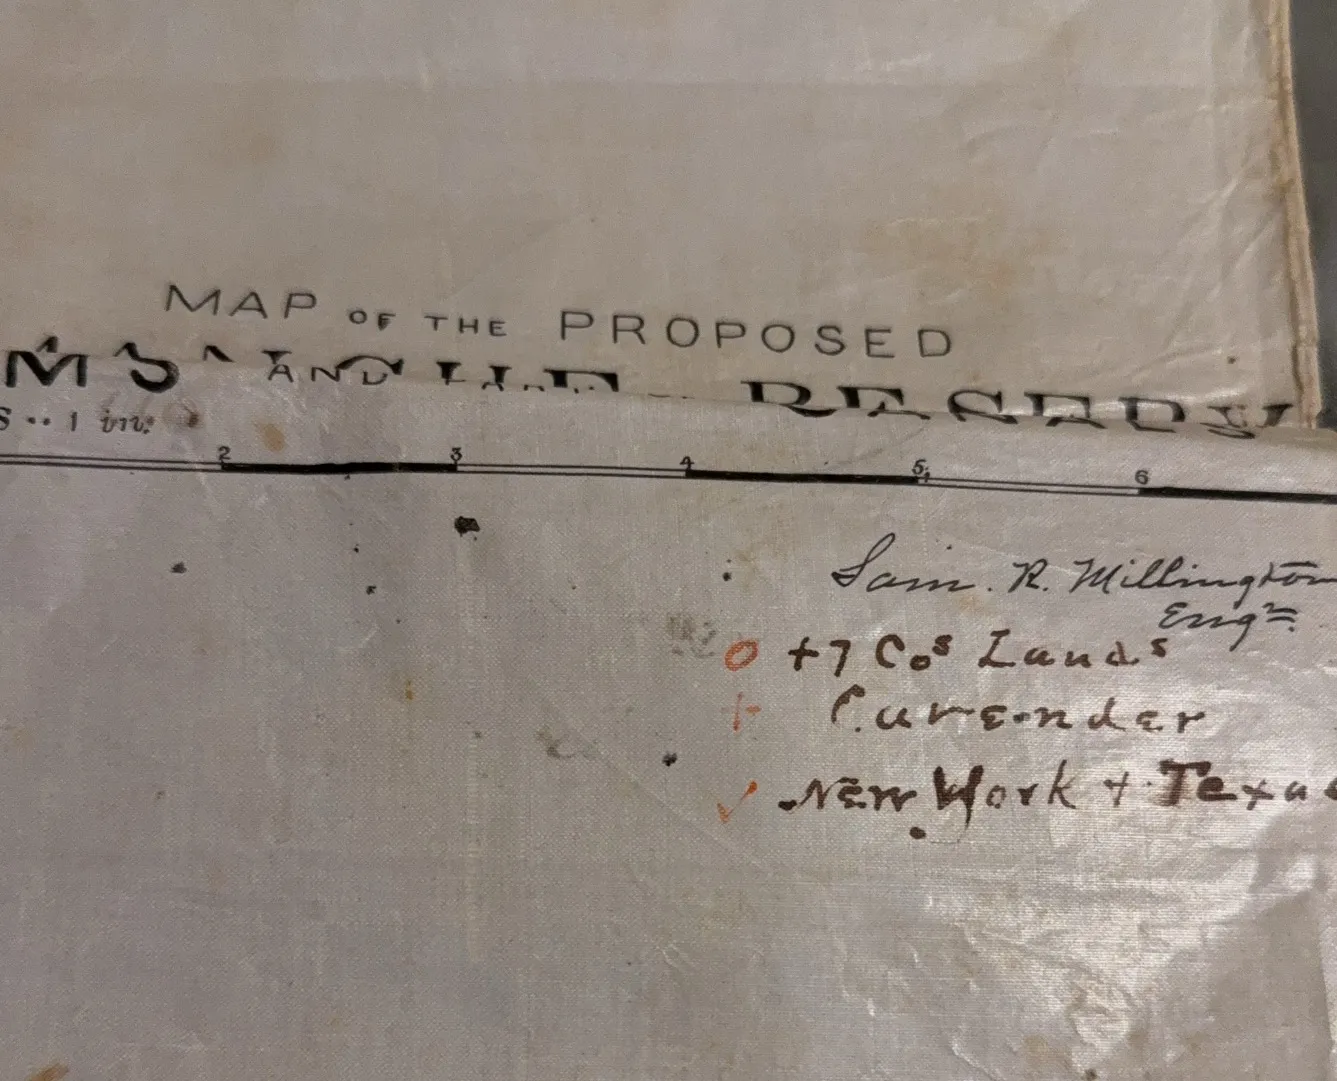 MAP OF THE PROPOSED
AND
S .. 1 in:
2 3 4 5 6
Sam. R. Millington
Engr.
O +7 Cos Lands
Cavender
✓ New York + Texas